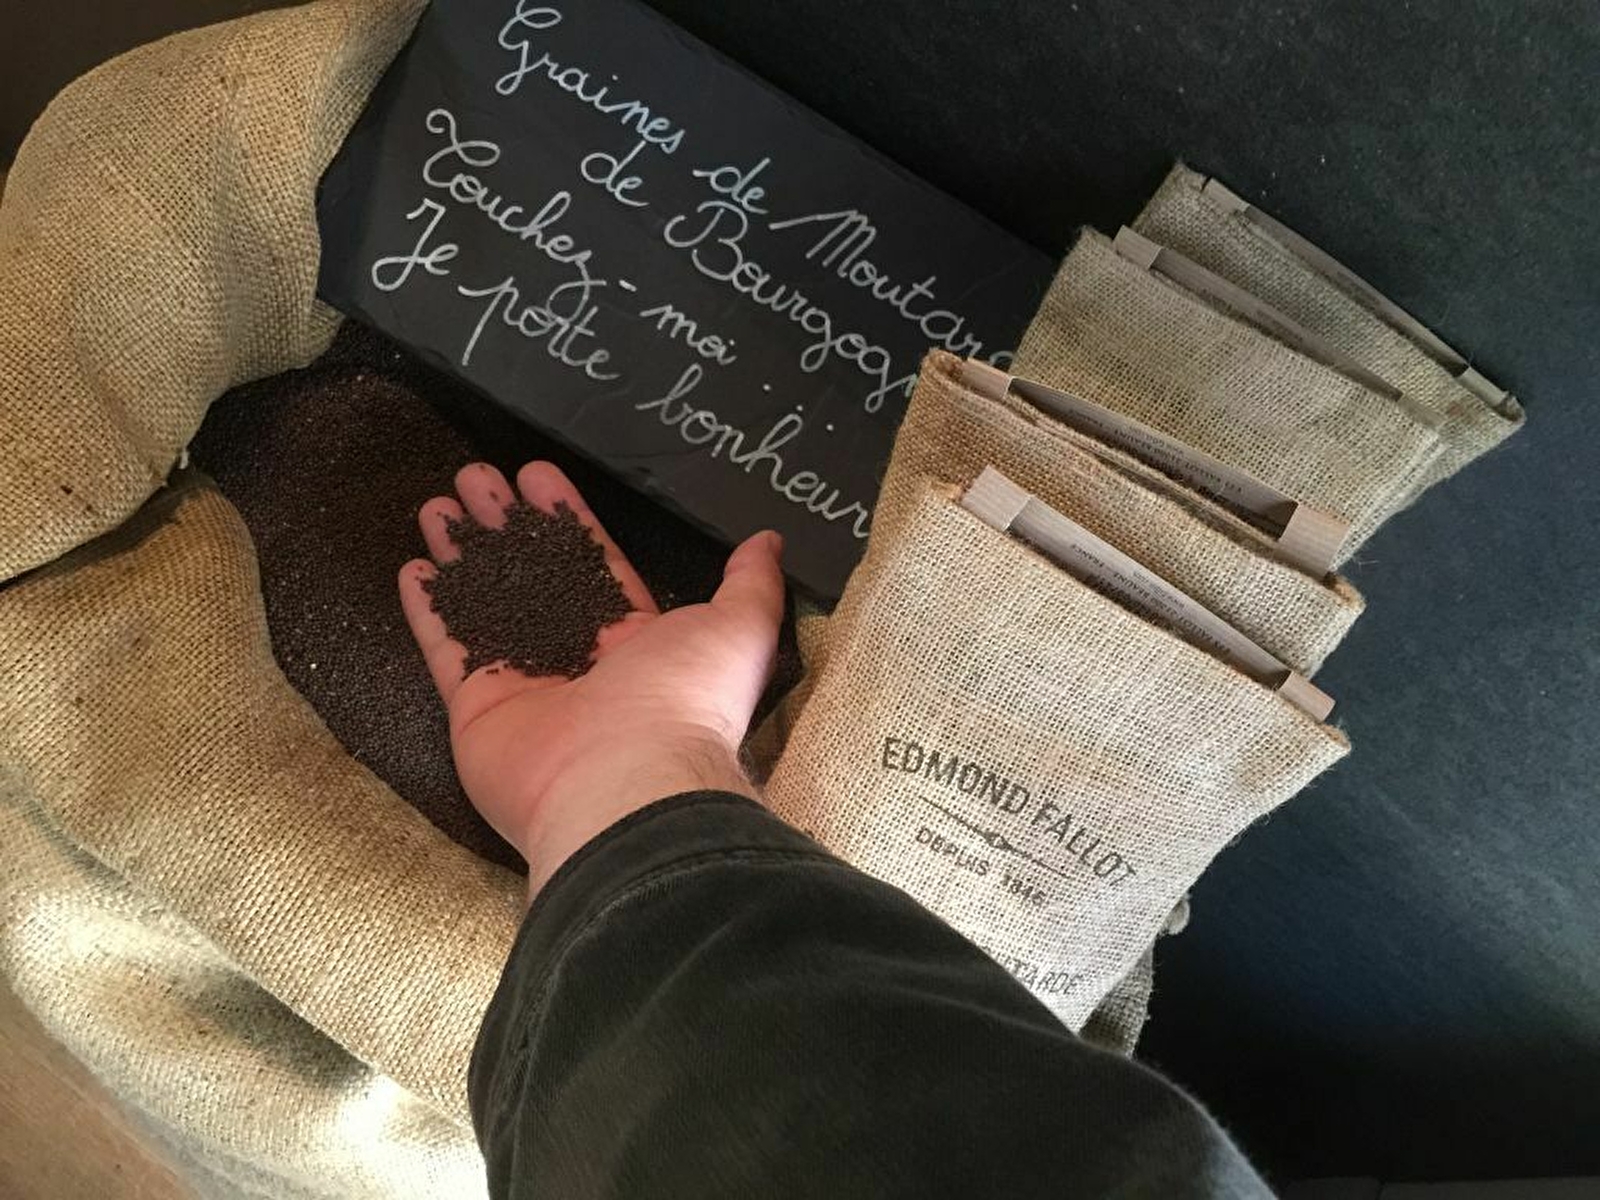 Graines de Moutarde
de Bourgogn
Touchez-moi :
Je porte bonheur
EDMOND FALLOT
DEPUIS 1840
UTARDE